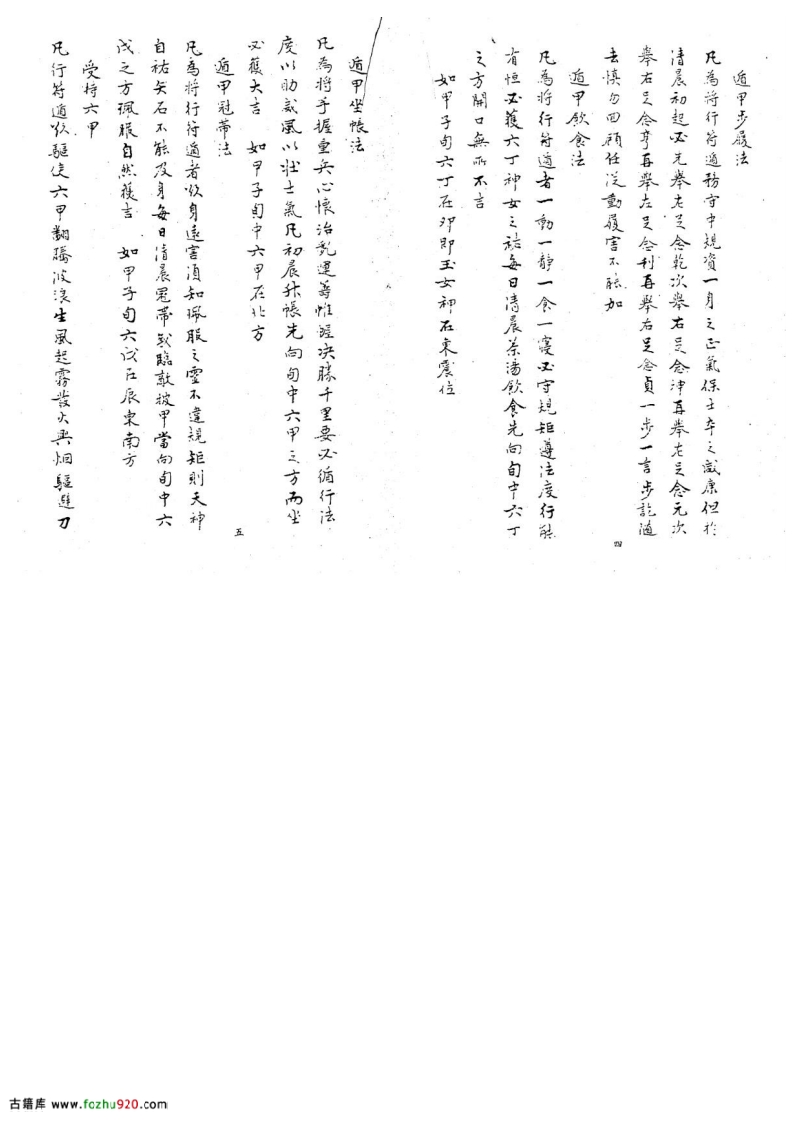 遁甲步履法
凡為將行符遁務守中規資一身之正氣保士卒之咸康但於
清晨初起必先舉左足念乾次舉右足念坤再舉左足念元次
舉右足念亨再舉左足念利再舉右足念貞一步一言步訖遁
去慎勿回顧任從動履害不能加
遁甲飲食法
凡為將行符遁者一動一靜一食一寢必守規矩遵法度行能
有恒必獲六丁神女之祐每日清晨茶湯飲食先向旬中六丁
之方開口無所不吉
如甲子旬六丁在卯即玉女神在東震位
四
遁甲坐帳法
凡為將手握重兵心懷治乱運籌帷幄决勝千里要必循行法
度以助威風以壯士氣凡初晨升帳先向旬中六甲之方而坐
必獲大吉 如甲子旬中六甲在北方
遁甲冠帶法
凡為將行符遁者欲身遠害須知珮服之靈不違規矩則天神
自祐矢石不能及身每日清晨冠帶或臨敵披甲當向旬中六
戊之方珮服自然獲吉 如甲子旬六戊在辰東南方
受持六甲
凡行符遁欲驅使六甲翻騰波浪生風起霧發火興烟驅避刀
五
古籍库 www.fozhu920.com